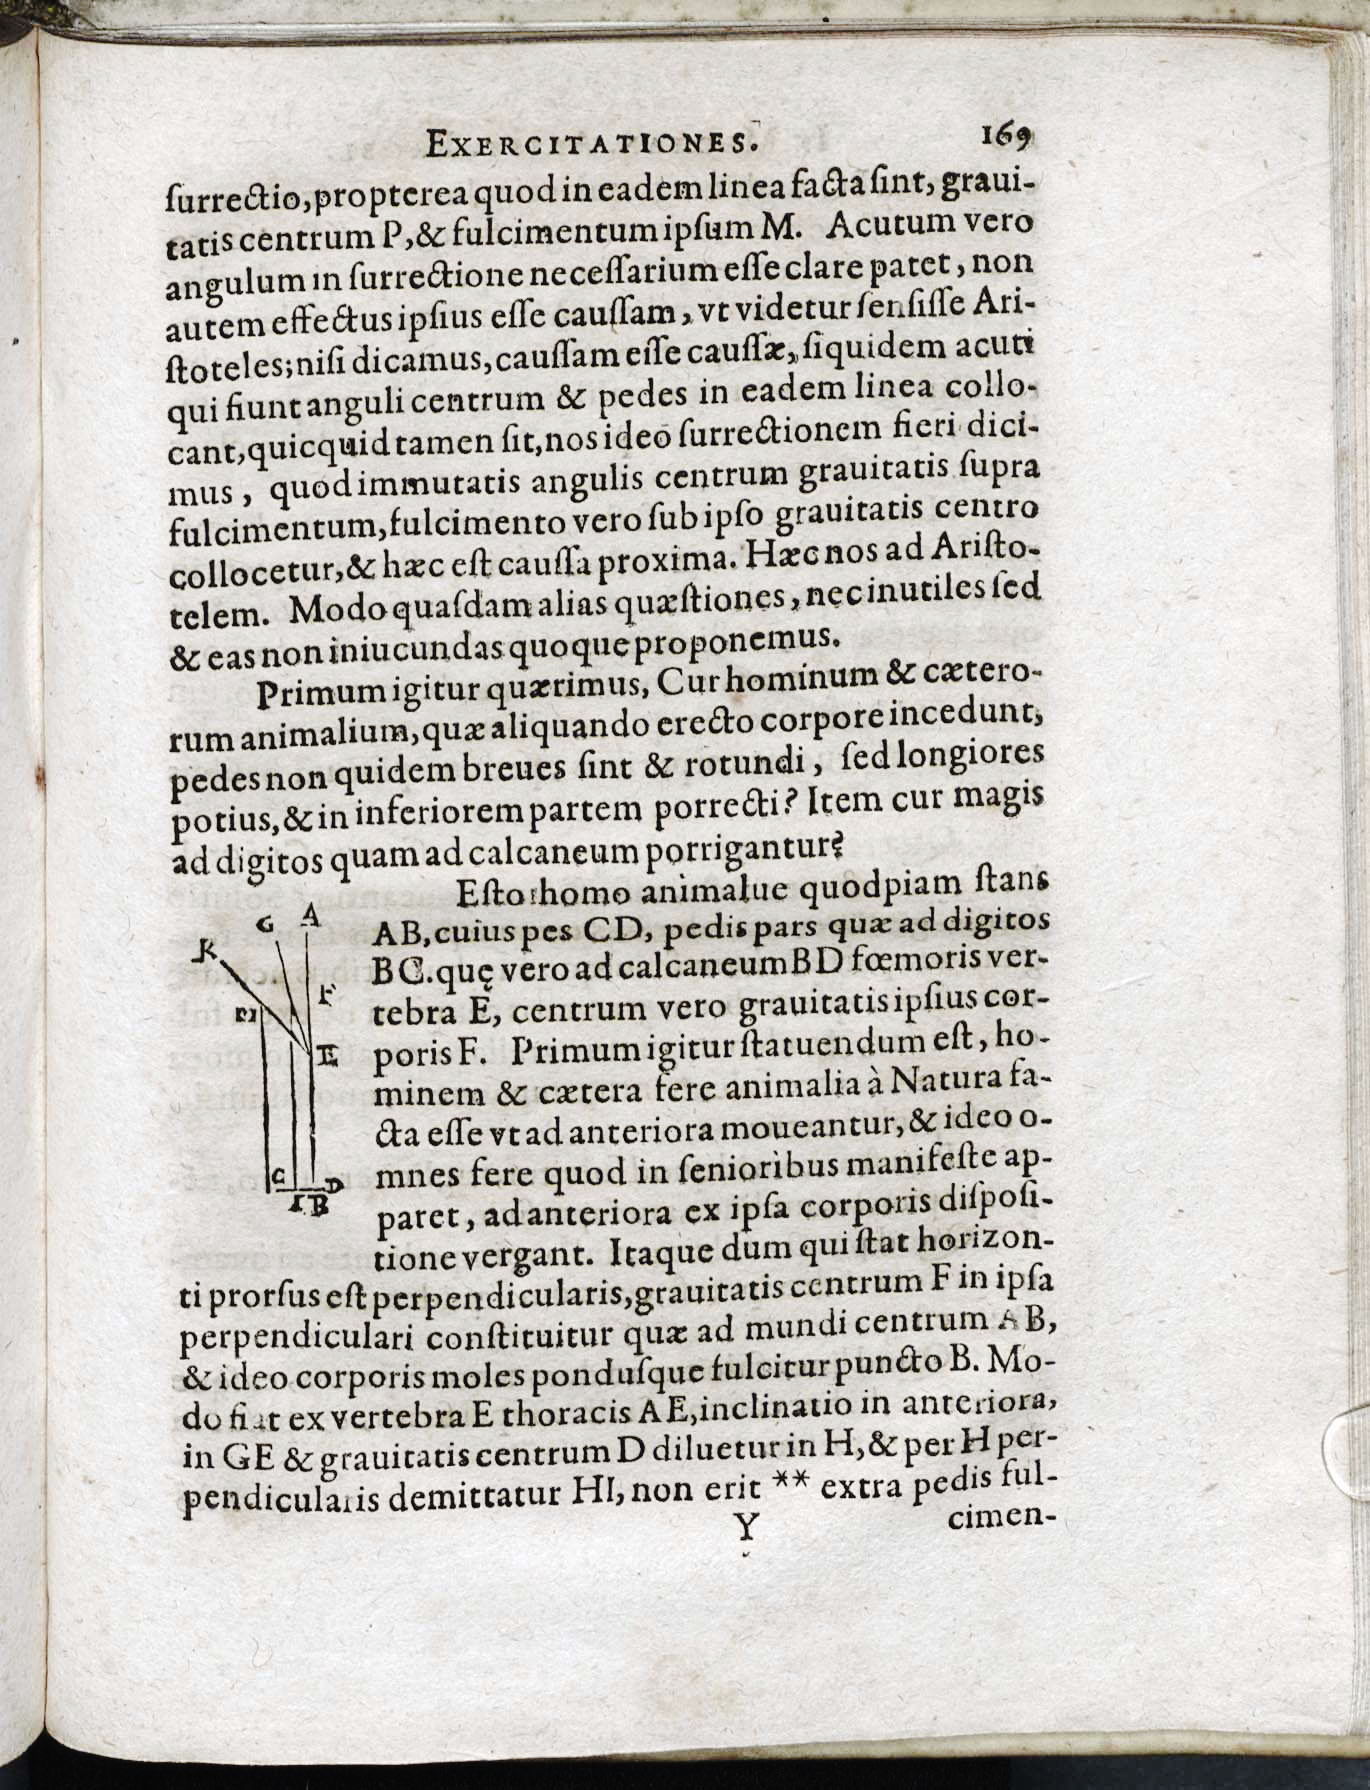 EXERCITATIONES. 169
ſurrectio, propterea quod in eadem linea facta ſint, graui-
tatis centrum P, & fulcimentum ipſum M. Acutum vero
angulum in ſurrectione neceſſarium eſſe clare patet, non
autem effectus ipſius eſſe cauſſam, vt videtur ſenſiſſe Ari-
ſtoteles; niſi dicamus, cauſſam eſſe cauſſæ, ſiquidem acuti
qui fiunt anguli centrum & pedes in eadem linea collo-
cant, quicquid tamen ſit, nos ideo ſurrectionem fieri dici-
mus, quod immutatis angulis centrum grauitatis ſupra
fulcimentum, fulcimento vero ſub ipſo grauitatis centro
collocetur, & hæc eſt cauſſa proxima. Hæc nos ad Ariſto-
telem. Modo quaſdam alias quæſtiones, nec inutiles ſed
& eas non iniucundas quoque proponemus.
Primum igitur quærimus, Cur hominum & cætero-
rum animalium, quæ aliquando erecto corpore incedunt,
pedes non quidem breues ſint & rotundi, ſed longiores
potius, & in inferiorem partem porrecti? Item cur magis
ad digitos quam ad calcaneum porrigantur?
Eſto homo animalue quodpiam ſtans
AB, cuius pes CD, pedis pars quæ ad digitos
BC. quę vero ad calcaneum BD fœmoris ver-
tebra E, centrum vero grauitatis ipſius cor-
poris F. Primum igitur ſtatuendum eſt, ho-
minem & cætera fere animalia à Natura fa-
cta eſſe vt ad anteriora moueantur, & ideo o-
mnes fere quod in ſenioribus manifeſte ap-
paret, ad anteriora ex ipſa corporis diſpoſi-
tione vergant. Itaque dum qui ſtat horizon-
ti prorſus eſt perpendicularis, grauitatis centrum F in ipſa
perpendiculari conſtituitur quæ ad mundi centrum AB,
& ideo corporis moles pondusque fulcitur puncto B. Mo-
do fiat ex vertebra E thoracis AE, inclinatio in anteriora,
in GE & grauitatis centrum D diluetur in H, & per H per-
pendicularis demittatur HI, non erit ** extra pedis ful-
Y cimen-
G A
K
F
M
E
C D
I B